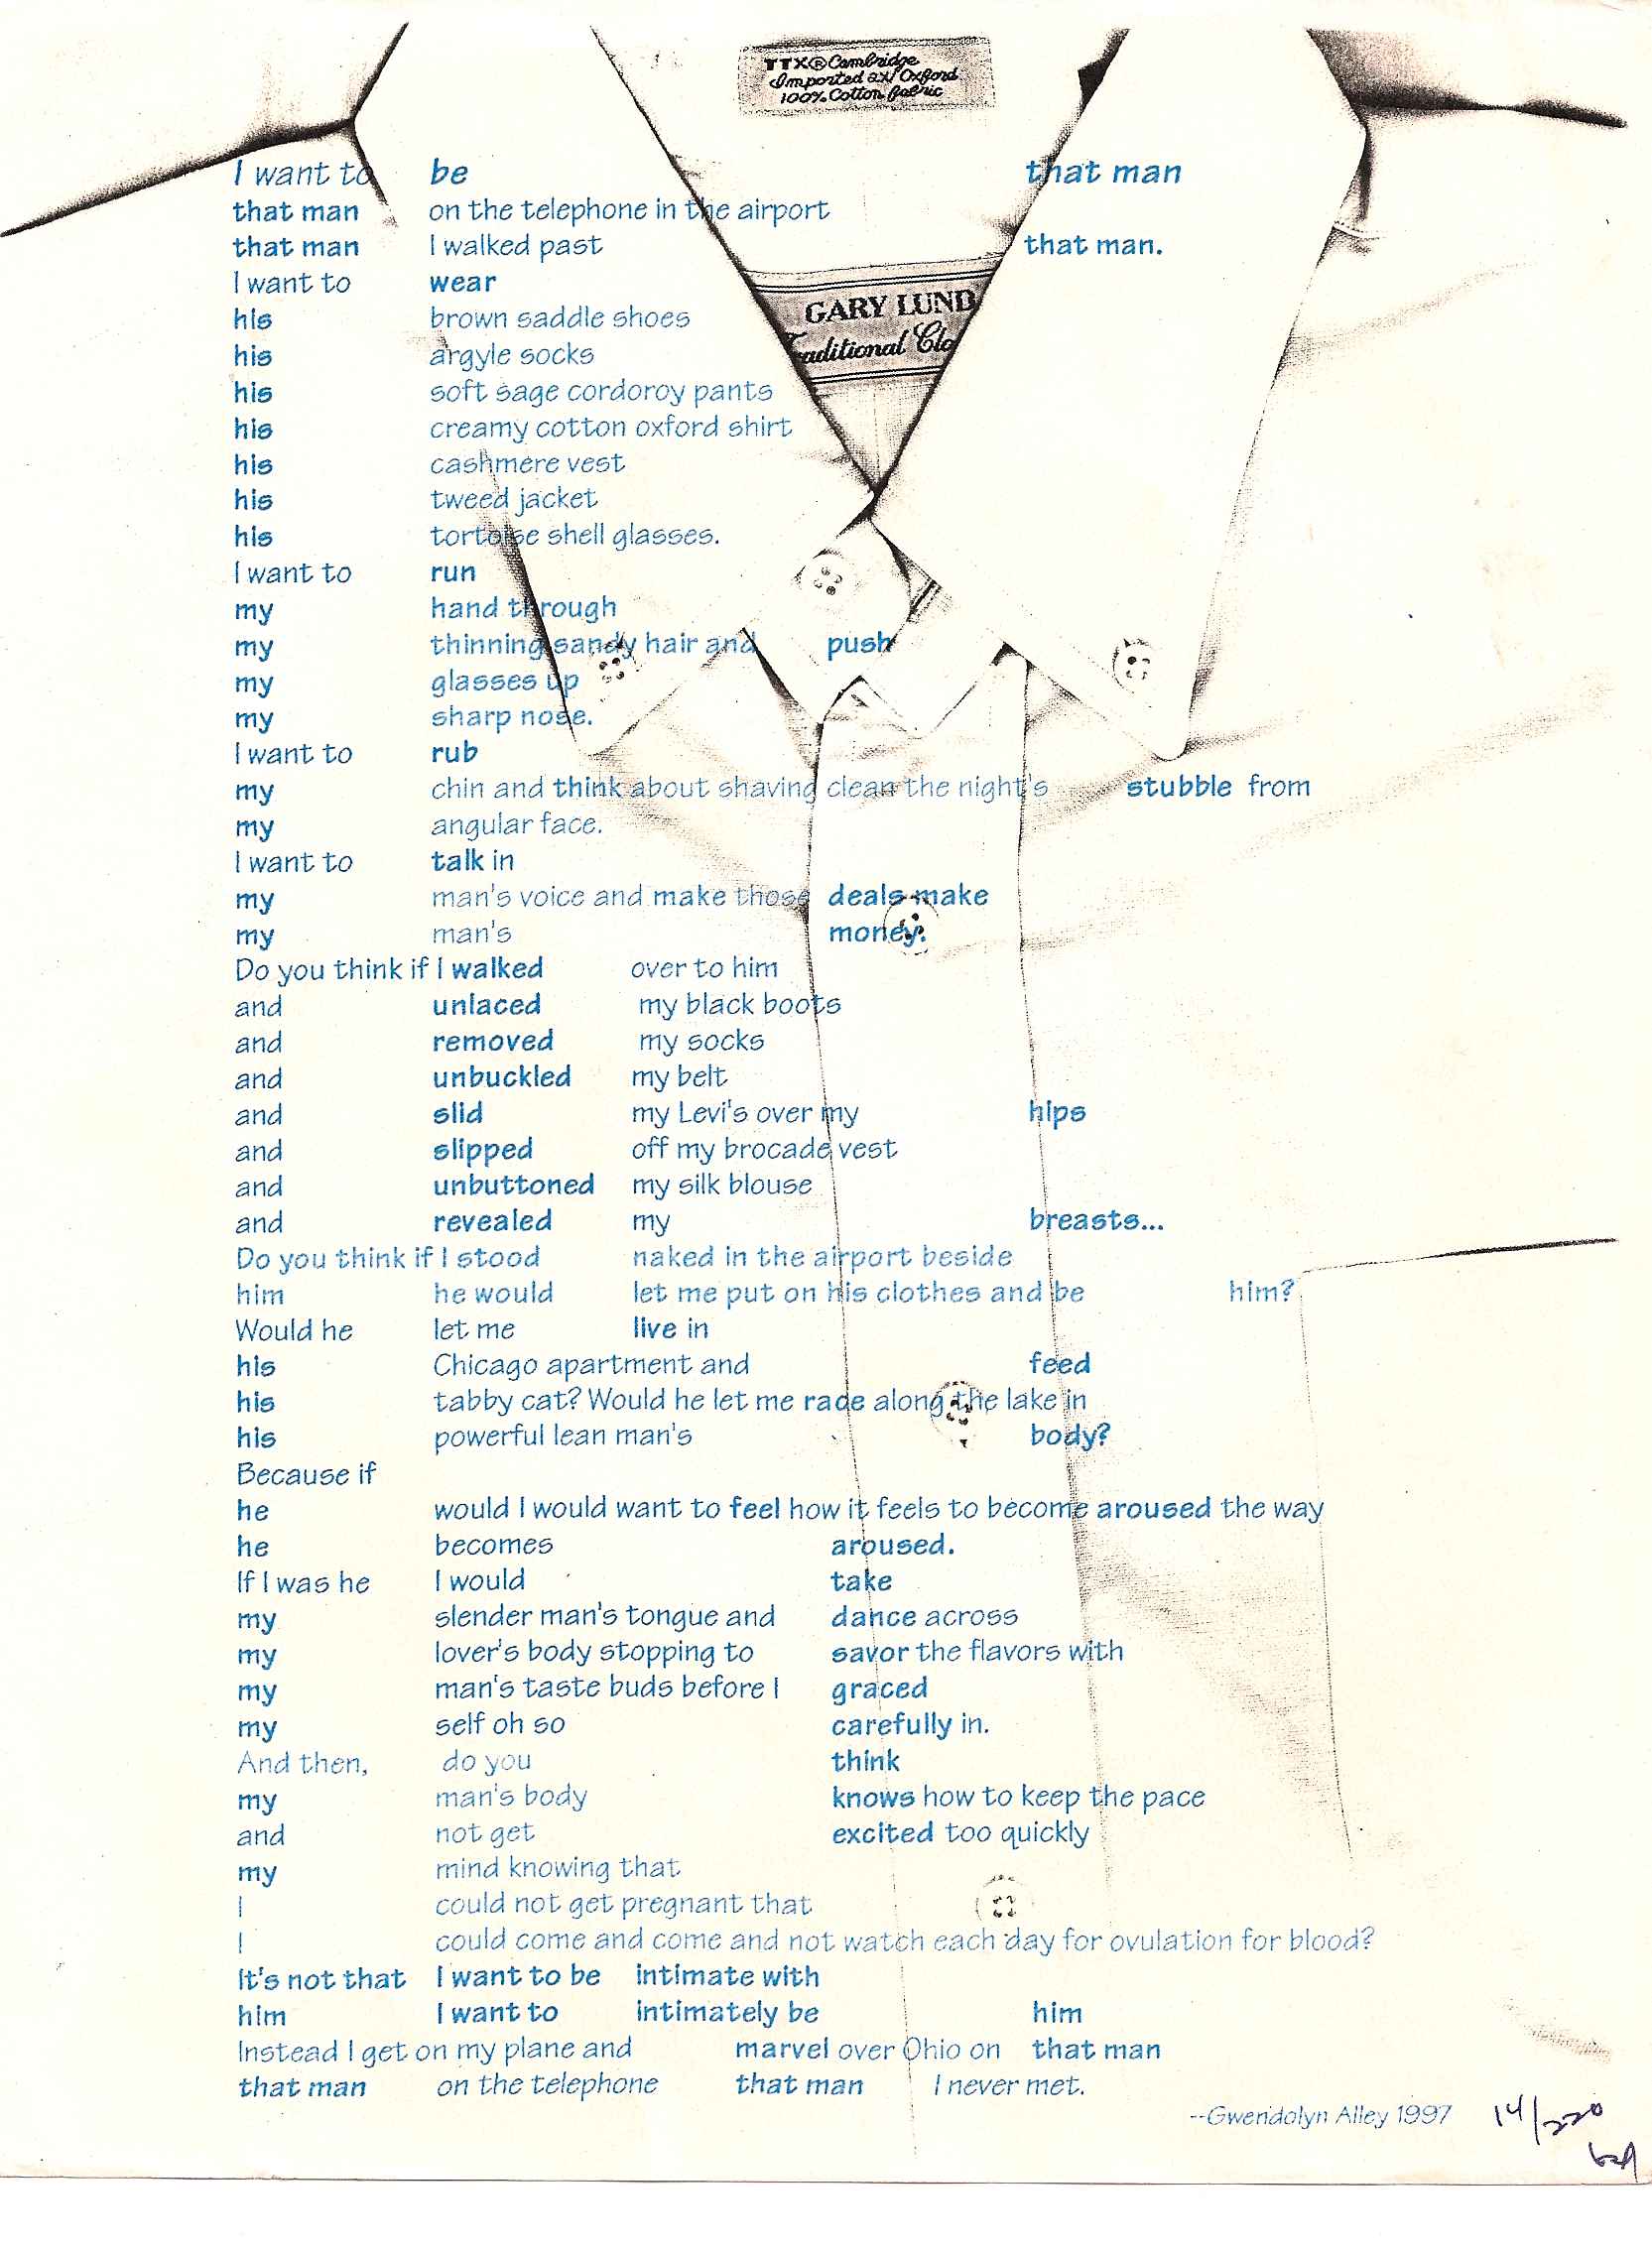 TTX® Cambridge
Imported 2x1 Oxford
100% Cotton fabric
I want to be that man
that man on the telephone in the airport
that man I walked past that man.
GARY LUND
Traditional Clo
I want to wear
his brown saddle shoes
his argyle socks
his soft sage cordoroy pants
his creamy cotton oxford shirt
his cashmere vest
his tweed jacket
his tortoise shell glasses.
I want to run
my hand through
my thinning sandy hair and push
my glasses up
my sharp nose.
I want to rub
my chin and think about shaving clean the night's stubble from
my angular face.
I want to talk in
my man's voice and make those deals make
my man's money.
Do you think if I walked over to him
and unlaced my black boots
and removed my socks
and unbuckled my belt
and slid my Levi's over my hips
and slipped off my brocade vest
and unbuttoned my silk blouse
and revealed my breasts...
Do you think if I stood naked in the airport beside
him he would let me put on his clothes and be him?
Would he let me live in
his Chicago apartment and feed
his tabby cat? Would he let me race along the lake in
his powerful lean man's body?
Because if
he would I would want to feel how it feels to become aroused the way
he becomes aroused.
If I was he I would take
my slender man's tongue and dance across
my lover's body stopping to savor the flavors with
my man's taste buds before I graced
my self oh so carefully in.
And then, do you think
my man's body knows how to keep the pace
and not get excited too quickly
my mind knowing that
I could not get pregnant that
I could come and come and not watch each day for ovulation for blood?
It's not that I want to be intimate with
him I want to intimately be him
Instead I get on my plane and marvel over Ohio on that man
that man on the telephone that man I never met.
--Gwendolyn Alley 1997 14/220